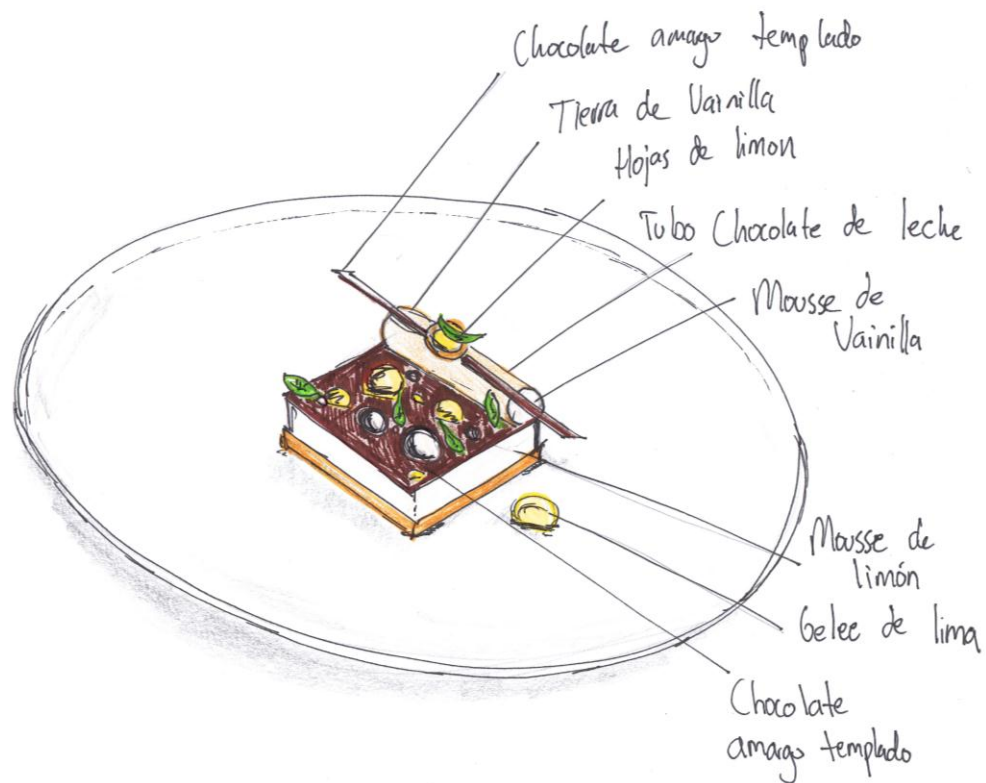 Chocolate amago templado
Tierra de Vainilla
Hojas de limon
Tubo Chocolate de leche
Mousse de
Vainilla
Mousse de
limón
Gelee de lima
Chocolate
amargo templado